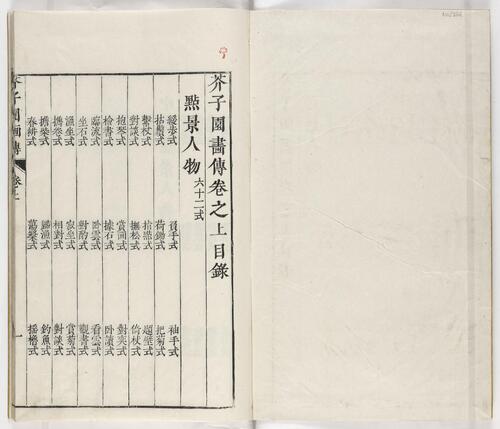 芥子園畫傳卷之上目錄
點景人物 六十二式
緩步式 負手式 袖手式
拈鬚式 荷鋤式 把菊式
擊杖式 拾燕式 題壁式
對談式 撫松式 倚杖式
抱琴式 賞圖式 對奕式
檢書式 據石式 卧讀式
臨流式 卧雲式 看雲式
坐石式 對酌式 觀書式
漁坐式 寂坐式 賞菊式
攜卷式 相對式 對談式
攜柴式 歸漁式 釣魚式
春耕式 搖櫓式
芥子園畫傳 卷上 一